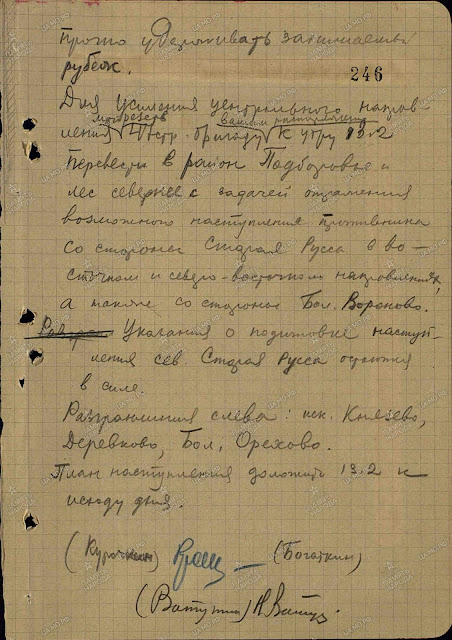 Прочно удерживать занимаемый
рубеж.
246
Для усиления центрального направ-
ления 4 стр. бригаду к утру 13.2
перевести в район Подборовье и
лес севернее с задачей отражения
возможного наступления противника
со стороны Старая Русса в во-
сточном и северо-восточном направлениях,
а также со стороны Бол. Вороново.
Указания о подготовке наступ-
ления сев. Старая Русса остаются
в силе.
Разгранлиния слева: иск. Князево,
Деревково, Бол. Орехово.
План наступления доложить 13.2 к
исходу дня.
(Курочкин) (Богаткин)
(Ватутин) Н Ватут